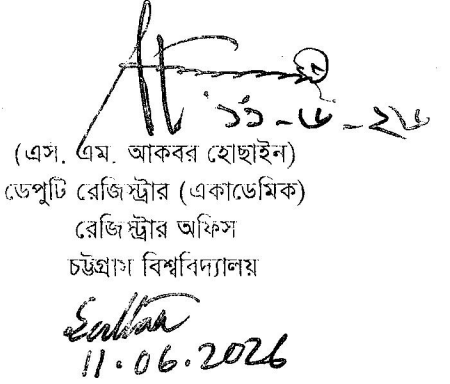 ১১-৬-২৬
(এস. এম. আকবর হোছাইন)
ডেপুটি রেজিস্ট্রার (একাডেমিক)
রেজিস্ট্রার অফিস
চট্টগ্রাম বিশ্ববিদ্যালয়
11.06.2026